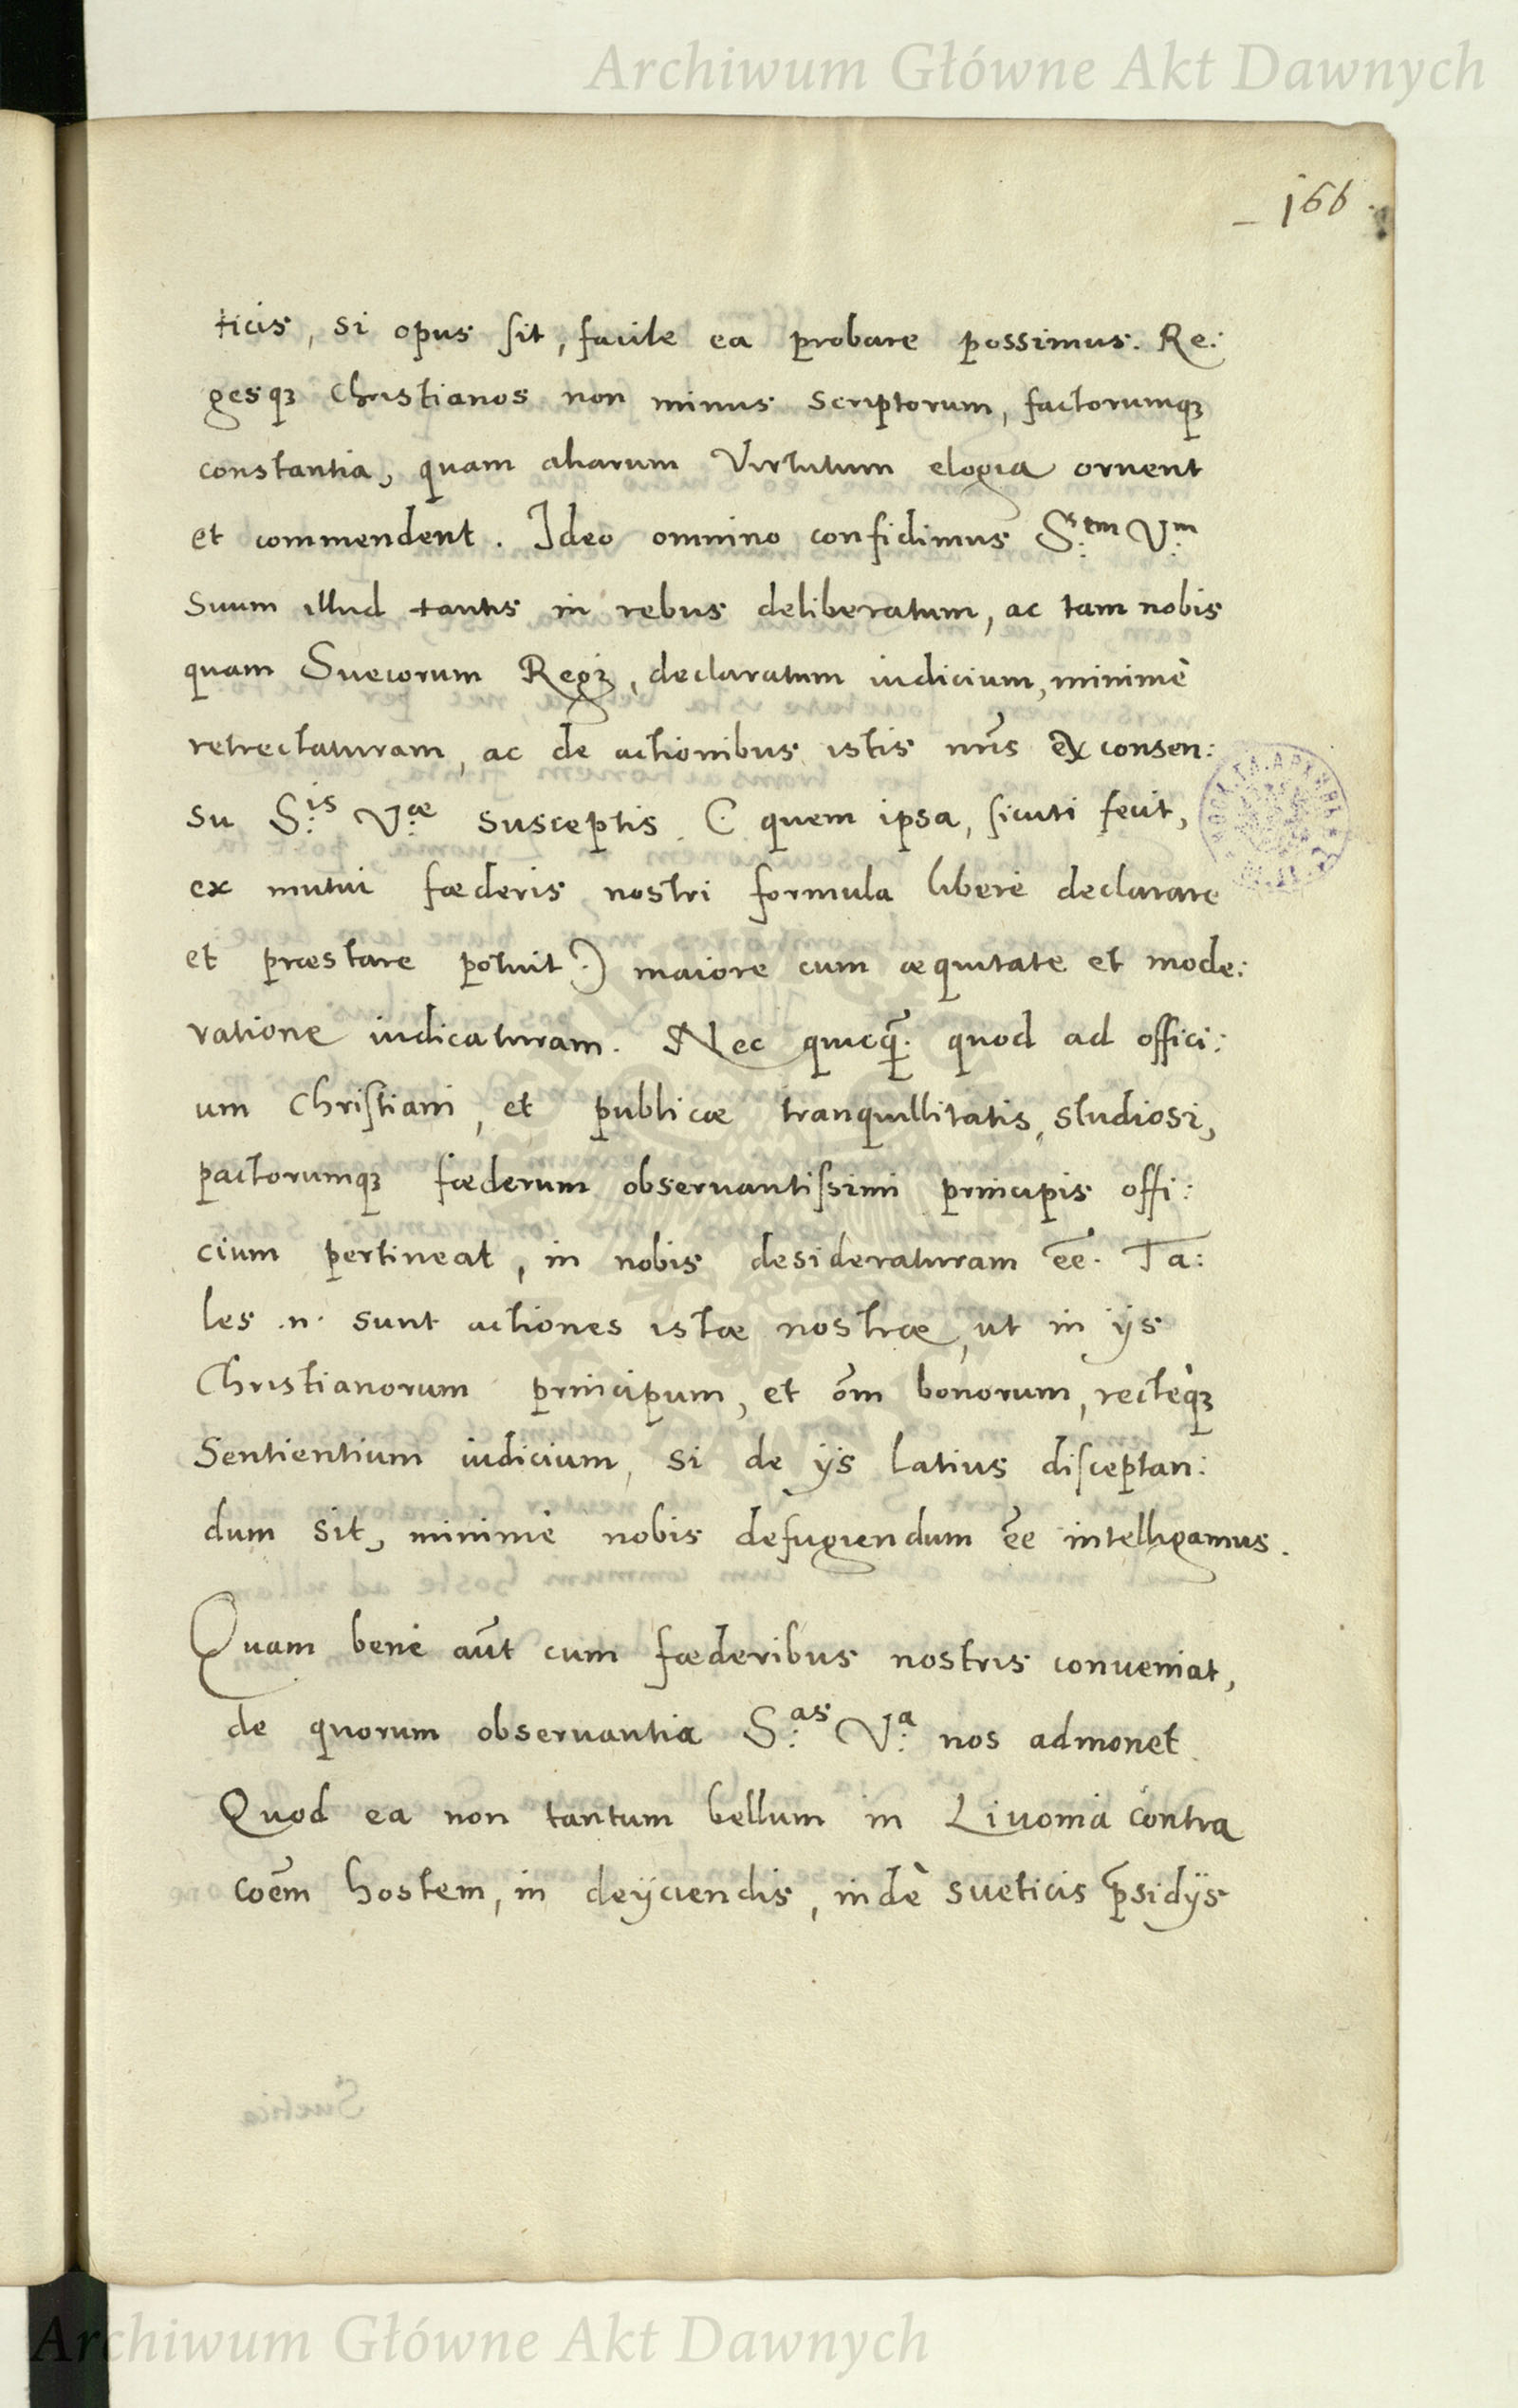 Archiwum Główne Akt Dawnych
166.
ticis, si opus sit, facile ea probare possimus. Re:
gesqȝ Christianos non minus scriptorum, factorumqȝ
constantia, quam aliarum Virtutum elogia ornent
et commendent. Ideo omnino confidimus S.tem V.m
Suum illud tantis in rebus deliberatum, ac tam nobis
quam Suecorum Regi, declaratum iudicium, minimè
retrectaturam, ac de actionibus istis nr̃is ex consen:
su S.is V.æ susceptis (: quem ipsa, sicuti fecit,
ex mutui fœderis nostri formula liberè declarare
et præstare potuit :) maiore cum æquitate et mode:
ratione iudicaturam. Nec quicq̃. quod ad offici:
um Christiani, et publicæ tranquillitatis, studiosi,
pactorumqȝ fœderum obseruantissimi principis offi:
cium pertineat, in nobis desideraturam eẽ. Ta:
les .n. sunt actiones istæ nostræ, ut in ijs
Christianorum principum, et om̃ bonorum, rectèqȝ
Sentientium iudicium, si de ijs latius disceptan:
dum sit, minimè nobis defugiendum eẽ intelligamus.
Quam benè aũt cum fœderibus nostris conueniat,
de quorum obseruantia S.as V.a nos admonet.
Quod ea non tantum bellum in Liuonia contra
coẽm hostem, in deijciendis, indè sueticis p̃sidijs
Archiwum Główne Akt Dawnych